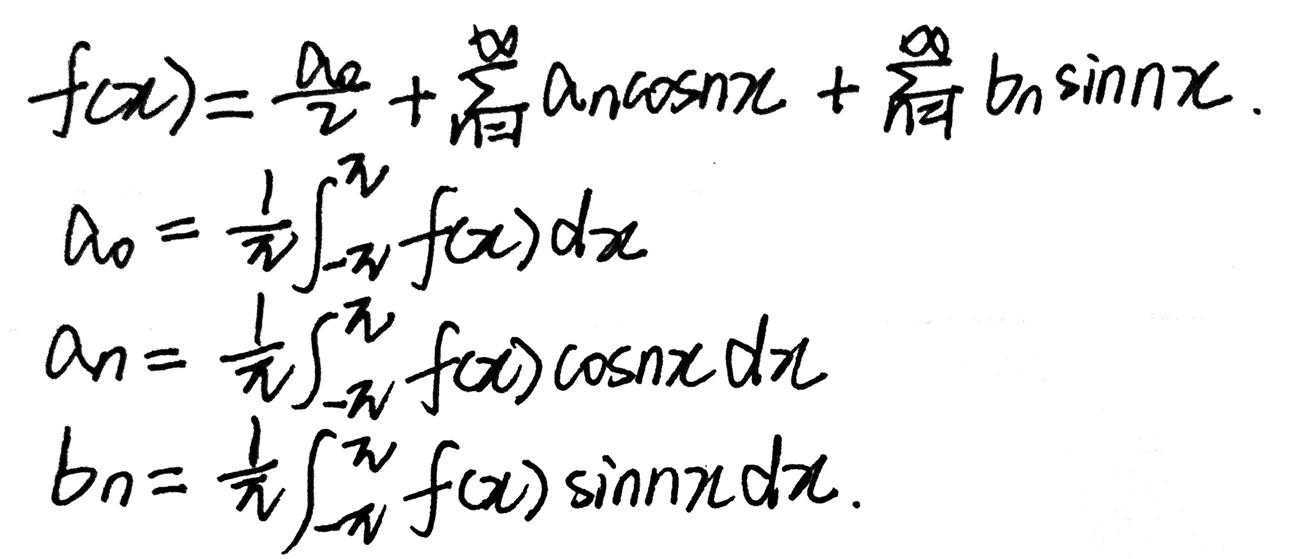 f(x) = a₀/2 + ∑_{n=1}^{∞} aₙcosnx + ∑_{n=1}^{∞} bₙ sinnx.
a₀ = 1/π ∫_{-π}^{π} f(x)dx
aₙ = 1/π ∫_{-π}^{π} f(x)cosnx dx
bₙ = 1/π ∫_{-π}^{π} f(x) sinnx dx.